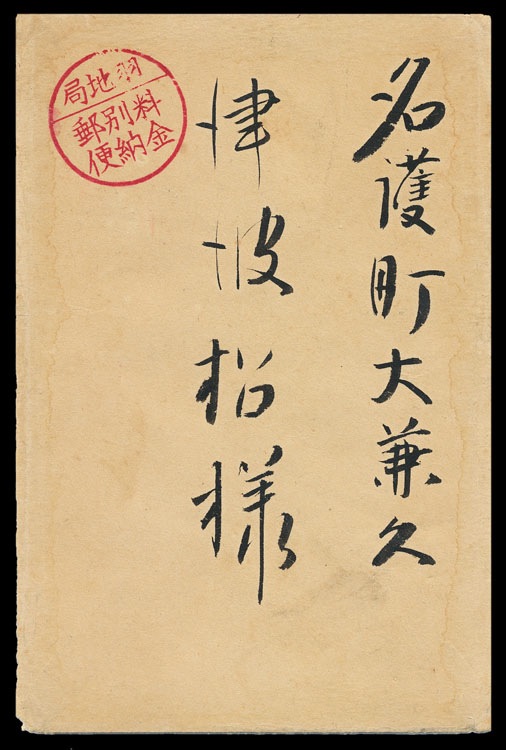 名護町大兼久
津波松様
羽地局
料金
別納
郵便